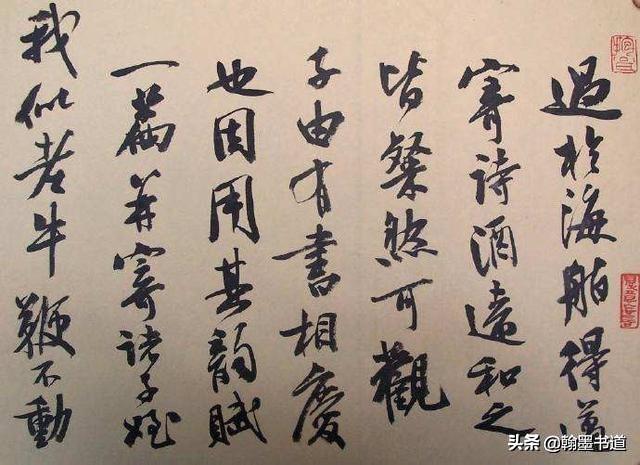 過於海舶得邁
寄詩酒遠和之
皆粲然可觀
子由有書相慶
也因用其韻賦
一篇并寄諸子姪
我似老牛鞭不動
头条 @翰墨书道